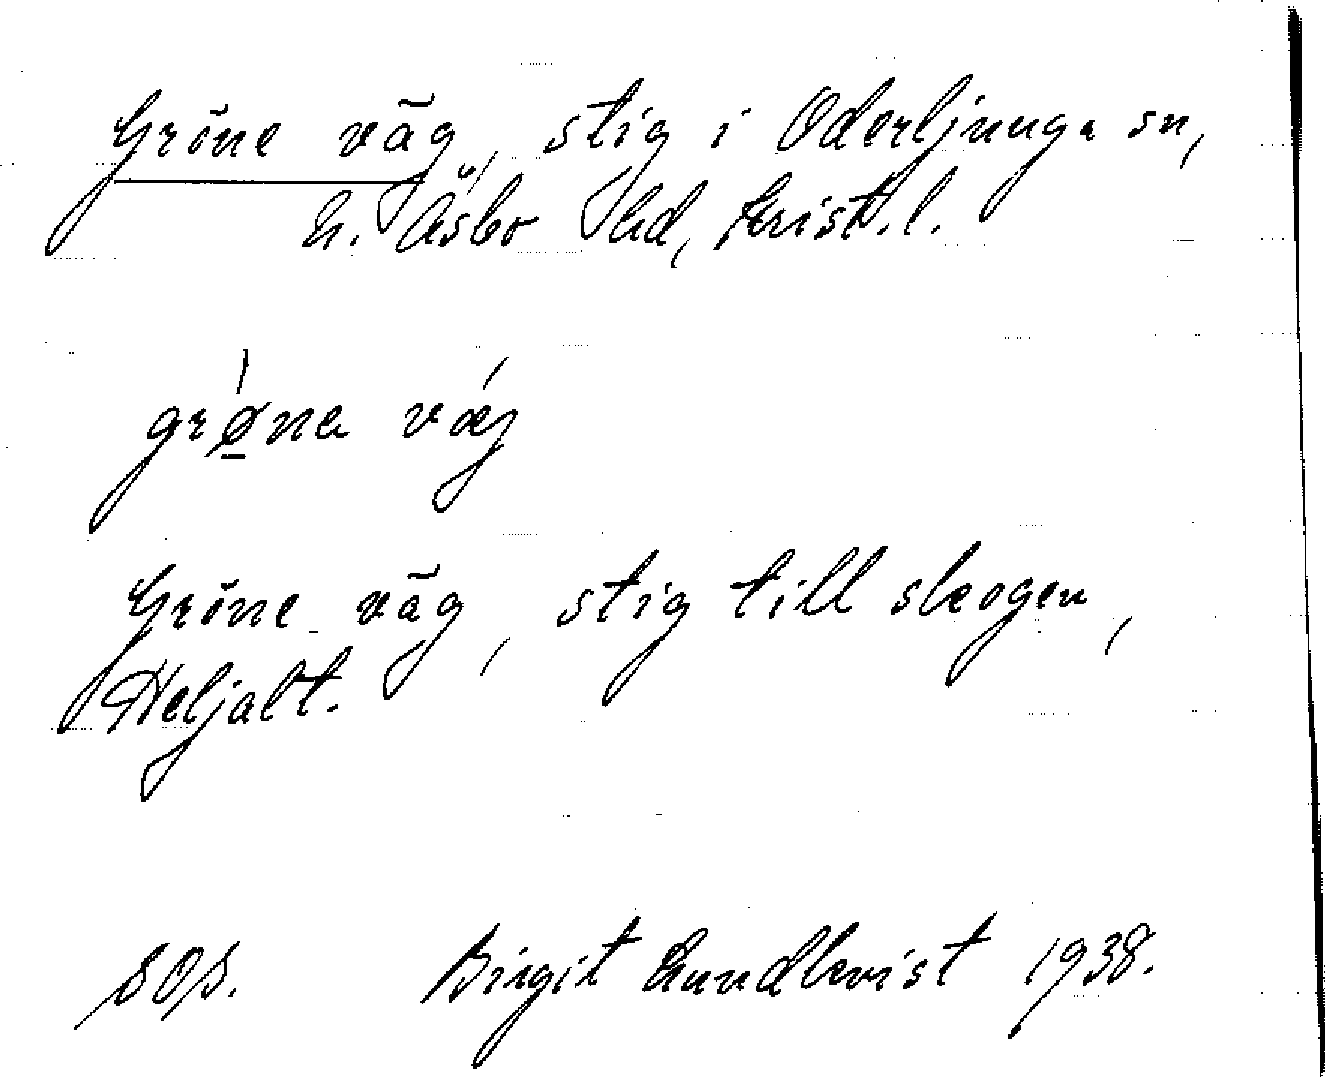 Gröne väg, stig i Oderljunga sn,
N. Åsbo hd, Krist. l.
grǿ̲na vǽj
Gröne väg, stig till skogen,
Heljalt.
SOS. Birgit Lundkvist 1938.